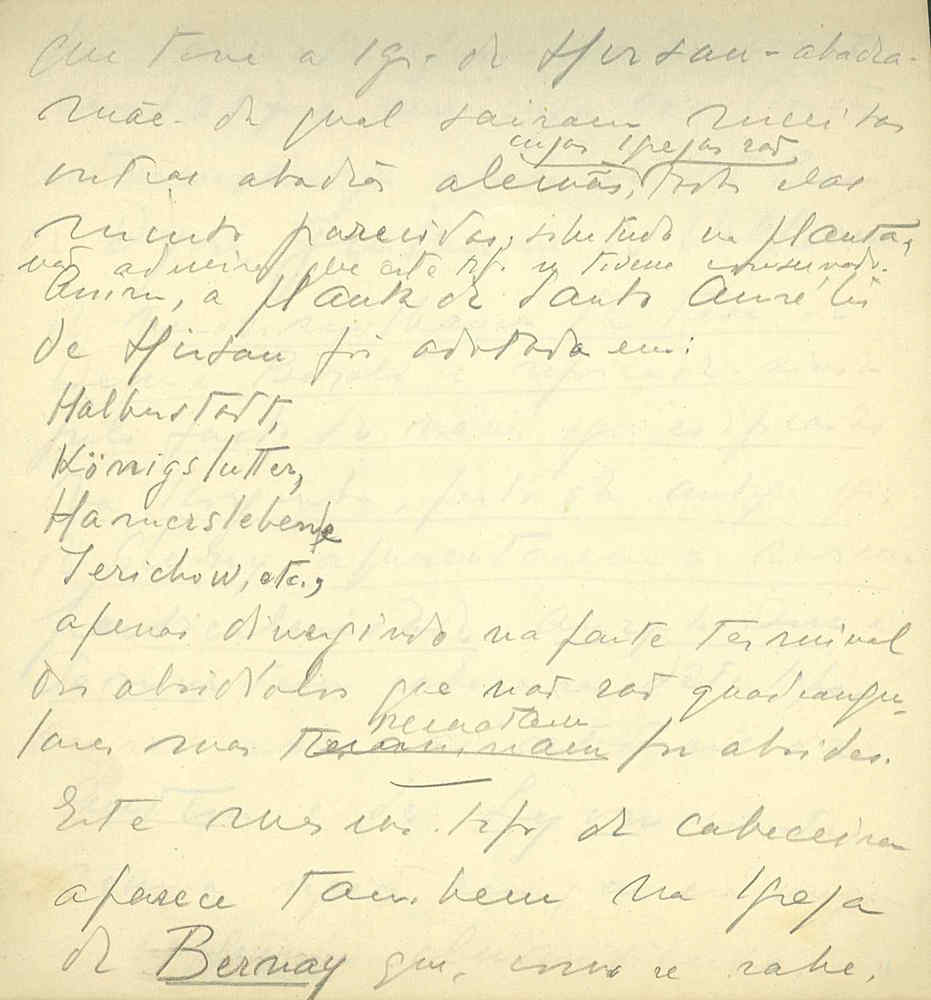 que teve a Igr. de Hirsau - abadia-
mãe - da qual sairam muitas
cujas Igrejas são
outras abadias alemãs, todas elas
muito parecidas, sobretudo na planta,
não admira que este tipo se tivesse conservado.
Assim, a planta de Santo Aurélio
de Hirsau foi adotada em:
Halberstadt,
Königslutter,
Hamersleben e
Jerichow, etc.,
apenas divergindo na parte terminal
dos absidíolos que não são quadrangu-
rematam
lares mas terminam por absides.
Este mesmo tipo de cabeceira
aparece tambem na Igreja
de Bernay que, como se sabe,